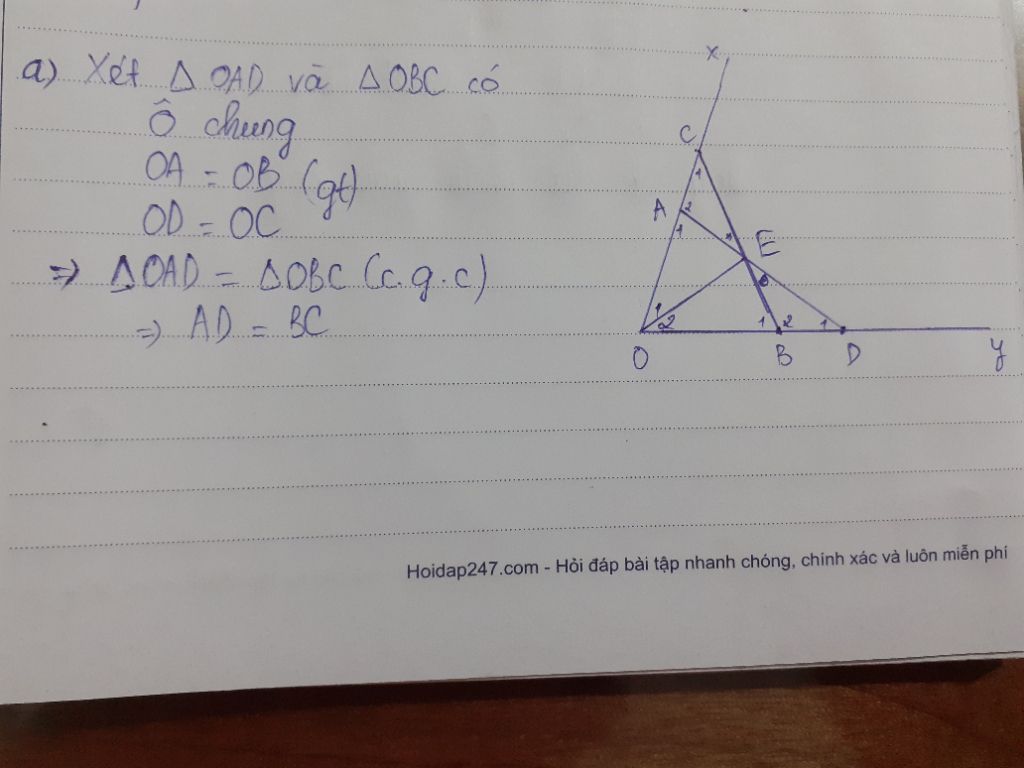 a) Xét Δ OAD và Δ OBC có
Ô chung
OA = OB (gt)
OD = OC
=> Δ OAD = Δ OBC (c.g.c)
=> AD = BC
x
C
1
A
2
1
E
1
2
1
2
1
O
B
D
y
Hoidap247.com - Hỏi đáp bài tập nhanh chóng, chính xác và luôn miễn phí